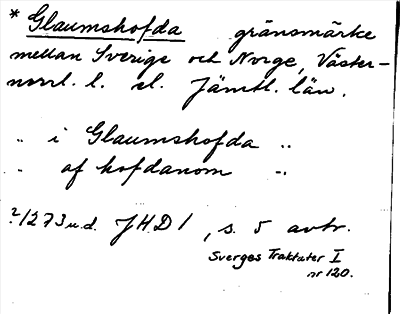 * Glaumshofda gränsmärke
mellan Sverige och Norge, Väster-
norrl. l. el. Jämtl. län.
„ i Glaumshofda „
„ af hofdanom „
?1273 u.d. JHD 1, s. 5 avtr.
Sverges Traktater I
nr 120.